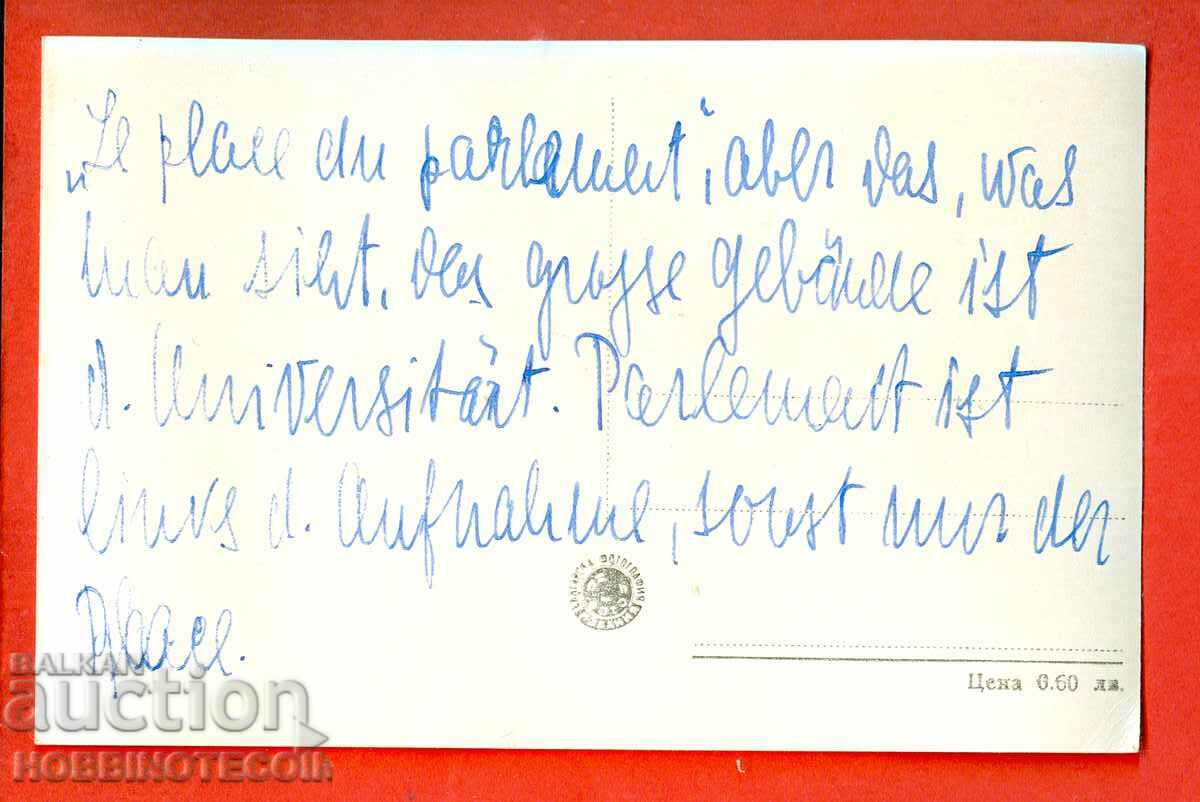 „Le place du parlament“, aber das, was
man siht, das grosse gebäude ist
d. Universität. Parlemant ist
links d. Aufnahme, sonst nur der
Place.
БЪЛГАРСКА ФОТОГРАФИЯ
Цена 0.60 лв.
BALKAN
auction
HOBBINOTECOIN